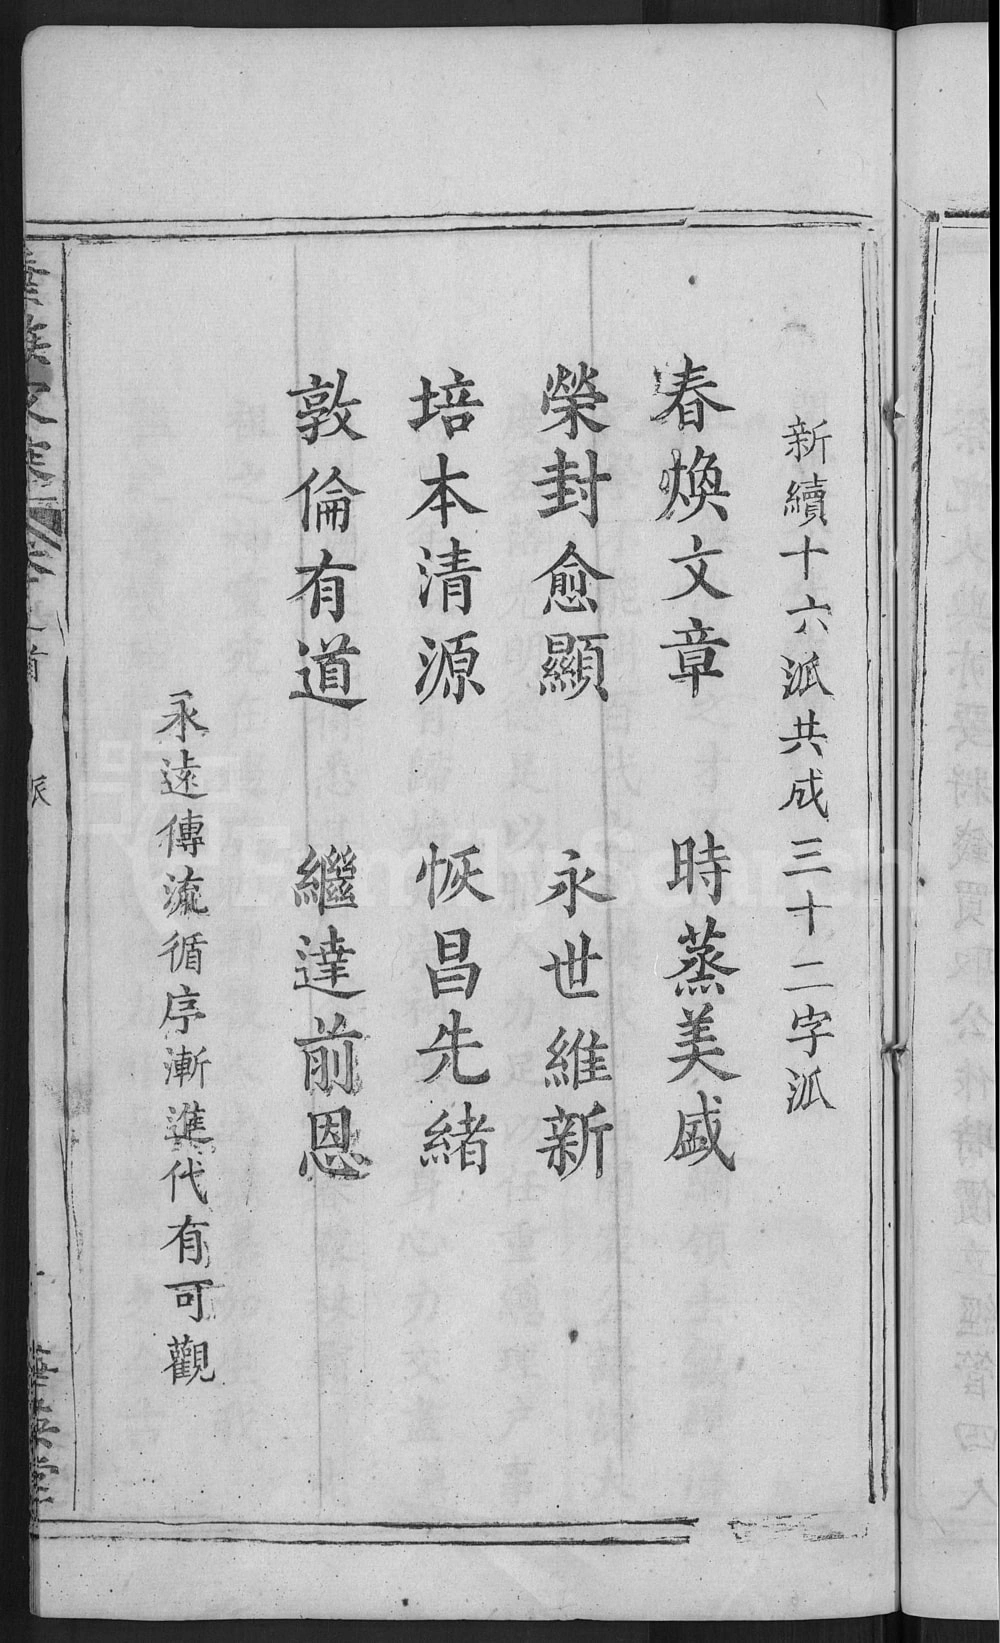 新續十六派共成三十二字派
春煥文章 時蒸美盛
榮封愈顯 永世維新
培本清源 恢昌先緒
敦倫有道 繼達前恩
永遠傳流循序漸進代有可觀
派